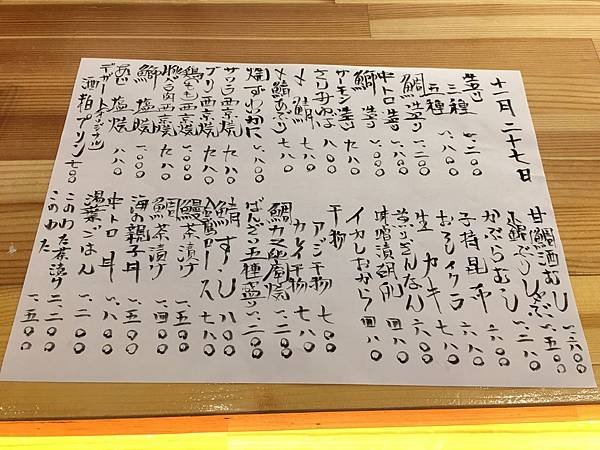 十二月二十七日
造り
三種 一、二〇〇
五種 一、八〇〇
鯛造り 一、二〇〇
中トロ造り 一、八〇〇
鰤造り 一、〇〇〇
サーモン造り 九八〇
〆鯖 七八〇
〆鯖あぶり 七八〇
焼ずわいがに 一、八〇〇
サワラ西京焼 九八〇
ブリ西京焼 九八〇
鶏もも西京焼 一、〇〇〇
西京焼 九八〇
鰤塩焼
あじ塩焼 八八〇
デザート
酒粕プリン 七〇〇
甘鯛酒むし 一、六〇〇
鰤ぶりしゃぶ 一、五〇〇
かぶらむし 一、二八〇
子持昆布 八〇〇
おろしイクラ 七八〇
生ガキ 六八〇
煎りぎんなん 六八〇
味噌漬クリームチーズ
イカしおから 四八〇
干物
アジ干物 七〇〇
カレイ干物 七八〇
鯛カマ塩焼 一、〇〇〇
ばんざい五種盛り 一、二〇〇
鯖すし 一、八〇〇
ロース 七八〇
鰻茶漬け 一、五〇〇
鯛茶漬け 一、二〇〇
海の親子丼 一、五〇〇
中トロ丼 一、八〇〇
湯葉ごはん 一、二〇〇
このわた茶漬け 一、二〇〇
このわた 一、五〇〇